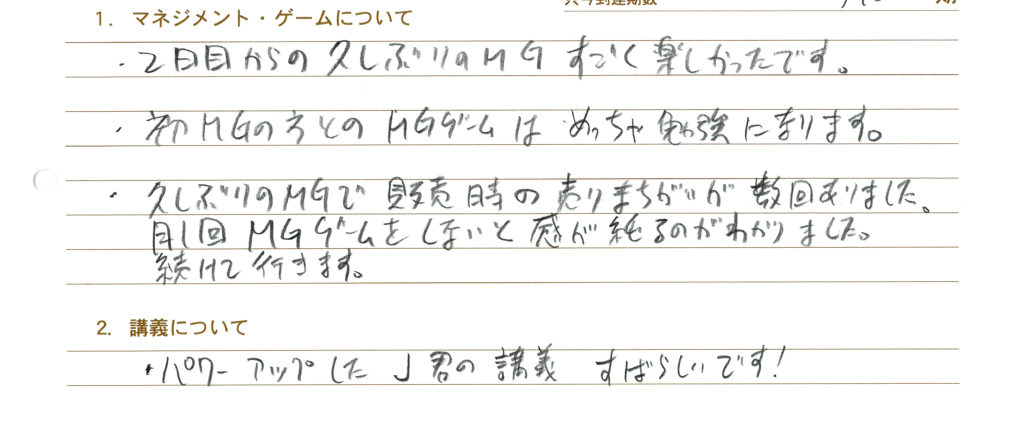 只今到達期数 期
1. マネジメント・ゲームについて
・2日目からの 久しぶりのMG すごく楽しかったです。
・初MGの方との MGゲームは めっちゃ勉強になります。
・久しぶりのMGで 販売時の売りまちがいが 数回ありました。
月1回 MGゲームをしないと 感が鈍るのがわかりました。
続けて行きます。
2. 講義について
・パワーアップした J君の講義 すばらしいです!